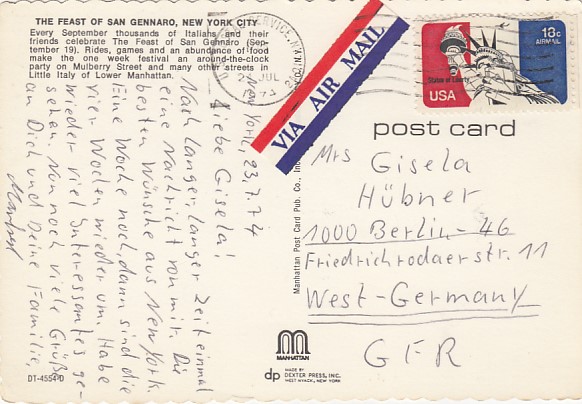 THE FEAST OF SAN GENNARO, NEW YORK CITY
Every September thousands of Italians and their
friends celebrate The Feast of San Gennaro (Sep-
tember 19). Rides, games and an abundance of food
make the one week festival an around-the-clock
party on Mulberry Street and many other streets in
Little Italy of Lower Manhattan.
New York, 23.7.74
Liebe Gisela!
Nach langer, langer Zeit einmal
eine Nachricht von mir. Die
besten Wünsche aus New York.
Eine Woche noch, dann sind die
vier Wochen wieder um. Habe
wieder viel Interessantes ge-
sehen. Nun noch viele Grüße
an Dich und Deine Familie,
Manfred
VIA AIR MAIL
JUL
Statue of Liberty
USA
18c
AIRMAIL
post card
Mrs Gisela
Hübner
1000 Berlin-46
Friedrichrodaerstr. 11
West-Germany
GFR
Manhattan Post Card Pub. Co., Inc.
MANHATTAN
dp
MADE BY
DEXTER PRESS, INC.
WEST NYACK, NEW YORK
DT-4554-D